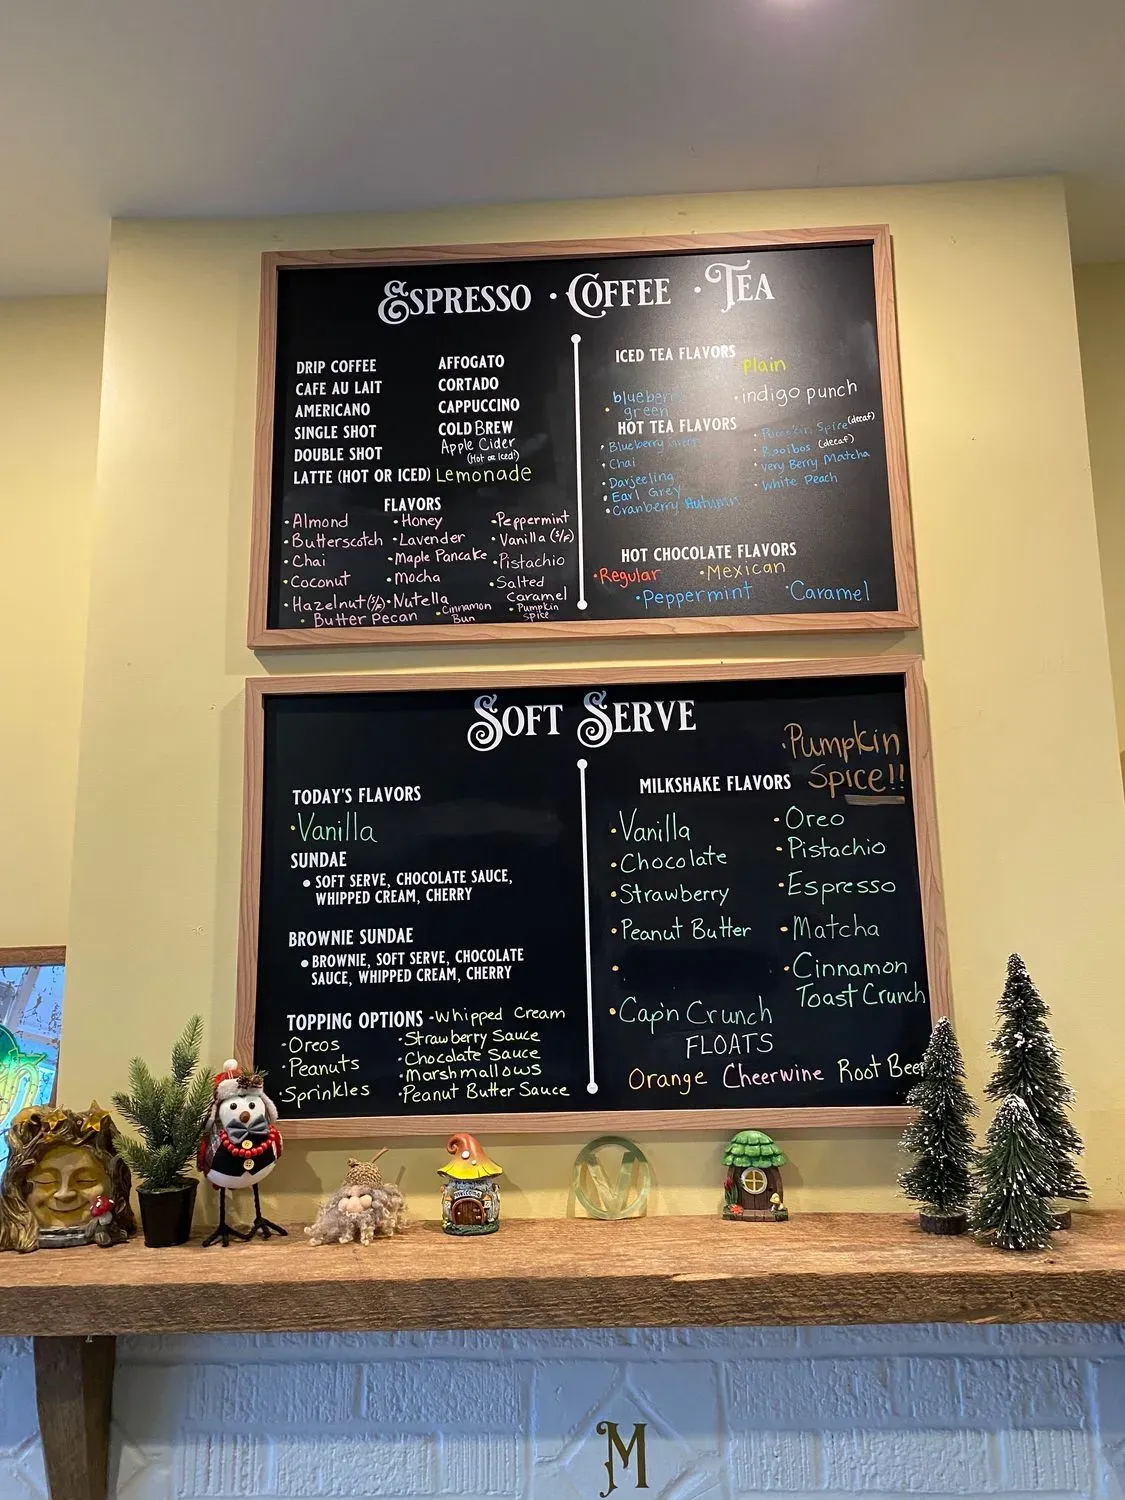 ESPRESSO · COFFEE · TEA
DRIP COFFEE
CAFE AU LAIT
AMERICANO
SINGLE SHOT
DOUBLE SHOT
LATTE (HOT OR ICED)
AFFOGATO
CORTADO
CAPPUCCINO
COLD BREW
Apple Cider
(Hot or Iced!)
Lemonade
FLAVORS
• Almond
• Butterscotch
• Chai
• Coconut
• Hazelnut (S/F)
• Butter Pecan
• Honey
• Lavender
• Maple Pancake
• Mocha
• Nutella
• Cinnamon
Bun
• Peppermint
• Vanilla (S/F)
• Pistachio
• Salted
Caramel
• Pumpkin
Spice
ICED TEA FLAVORS
Plain
• blueberry
green
• indigo punch
HOT TEA FLAVORS
• Blueberry Green
• Chai
• Darjeeling
• Earl Grey
• Cranberry Autumn
• Pumpkin Spice (decaf)
• Rooibos (decaf)
• Very Berry Matcha
• White Peach
HOT CHOCOLATE FLAVORS
• Regular
• Mexican
• Peppermint
• Caramel
SOFT SERVE
TODAY'S FLAVORS
• Vanilla
SUNDAE
• SOFT SERVE, CHOCOLATE SAUCE,
WHIPPED CREAM, CHERRY
BROWNIE SUNDAE
• BROWNIE, SOFT SERVE, CHOCOLATE
SAUCE, WHIPPED CREAM, CHERRY
TOPPING OPTIONS
• Oreos
• Peanuts
• Sprinkles
• Whipped Cream
• Strawberry Sauce
• Chocolate Sauce
• Marshmallows
• Peanut Butter Sauce
MILKSHAKE FLAVORS
• Pumpkin
Spice!!
• Vanilla
• Chocolate
• Strawberry
• Peanut Butter
•
• Cap'n Crunch
• Oreo
• Pistachio
• Espresso
• Matcha
• Cinnamon
Toast Crunch
FLOATS
Orange Cheerwine Root Beer
WELCOME
M